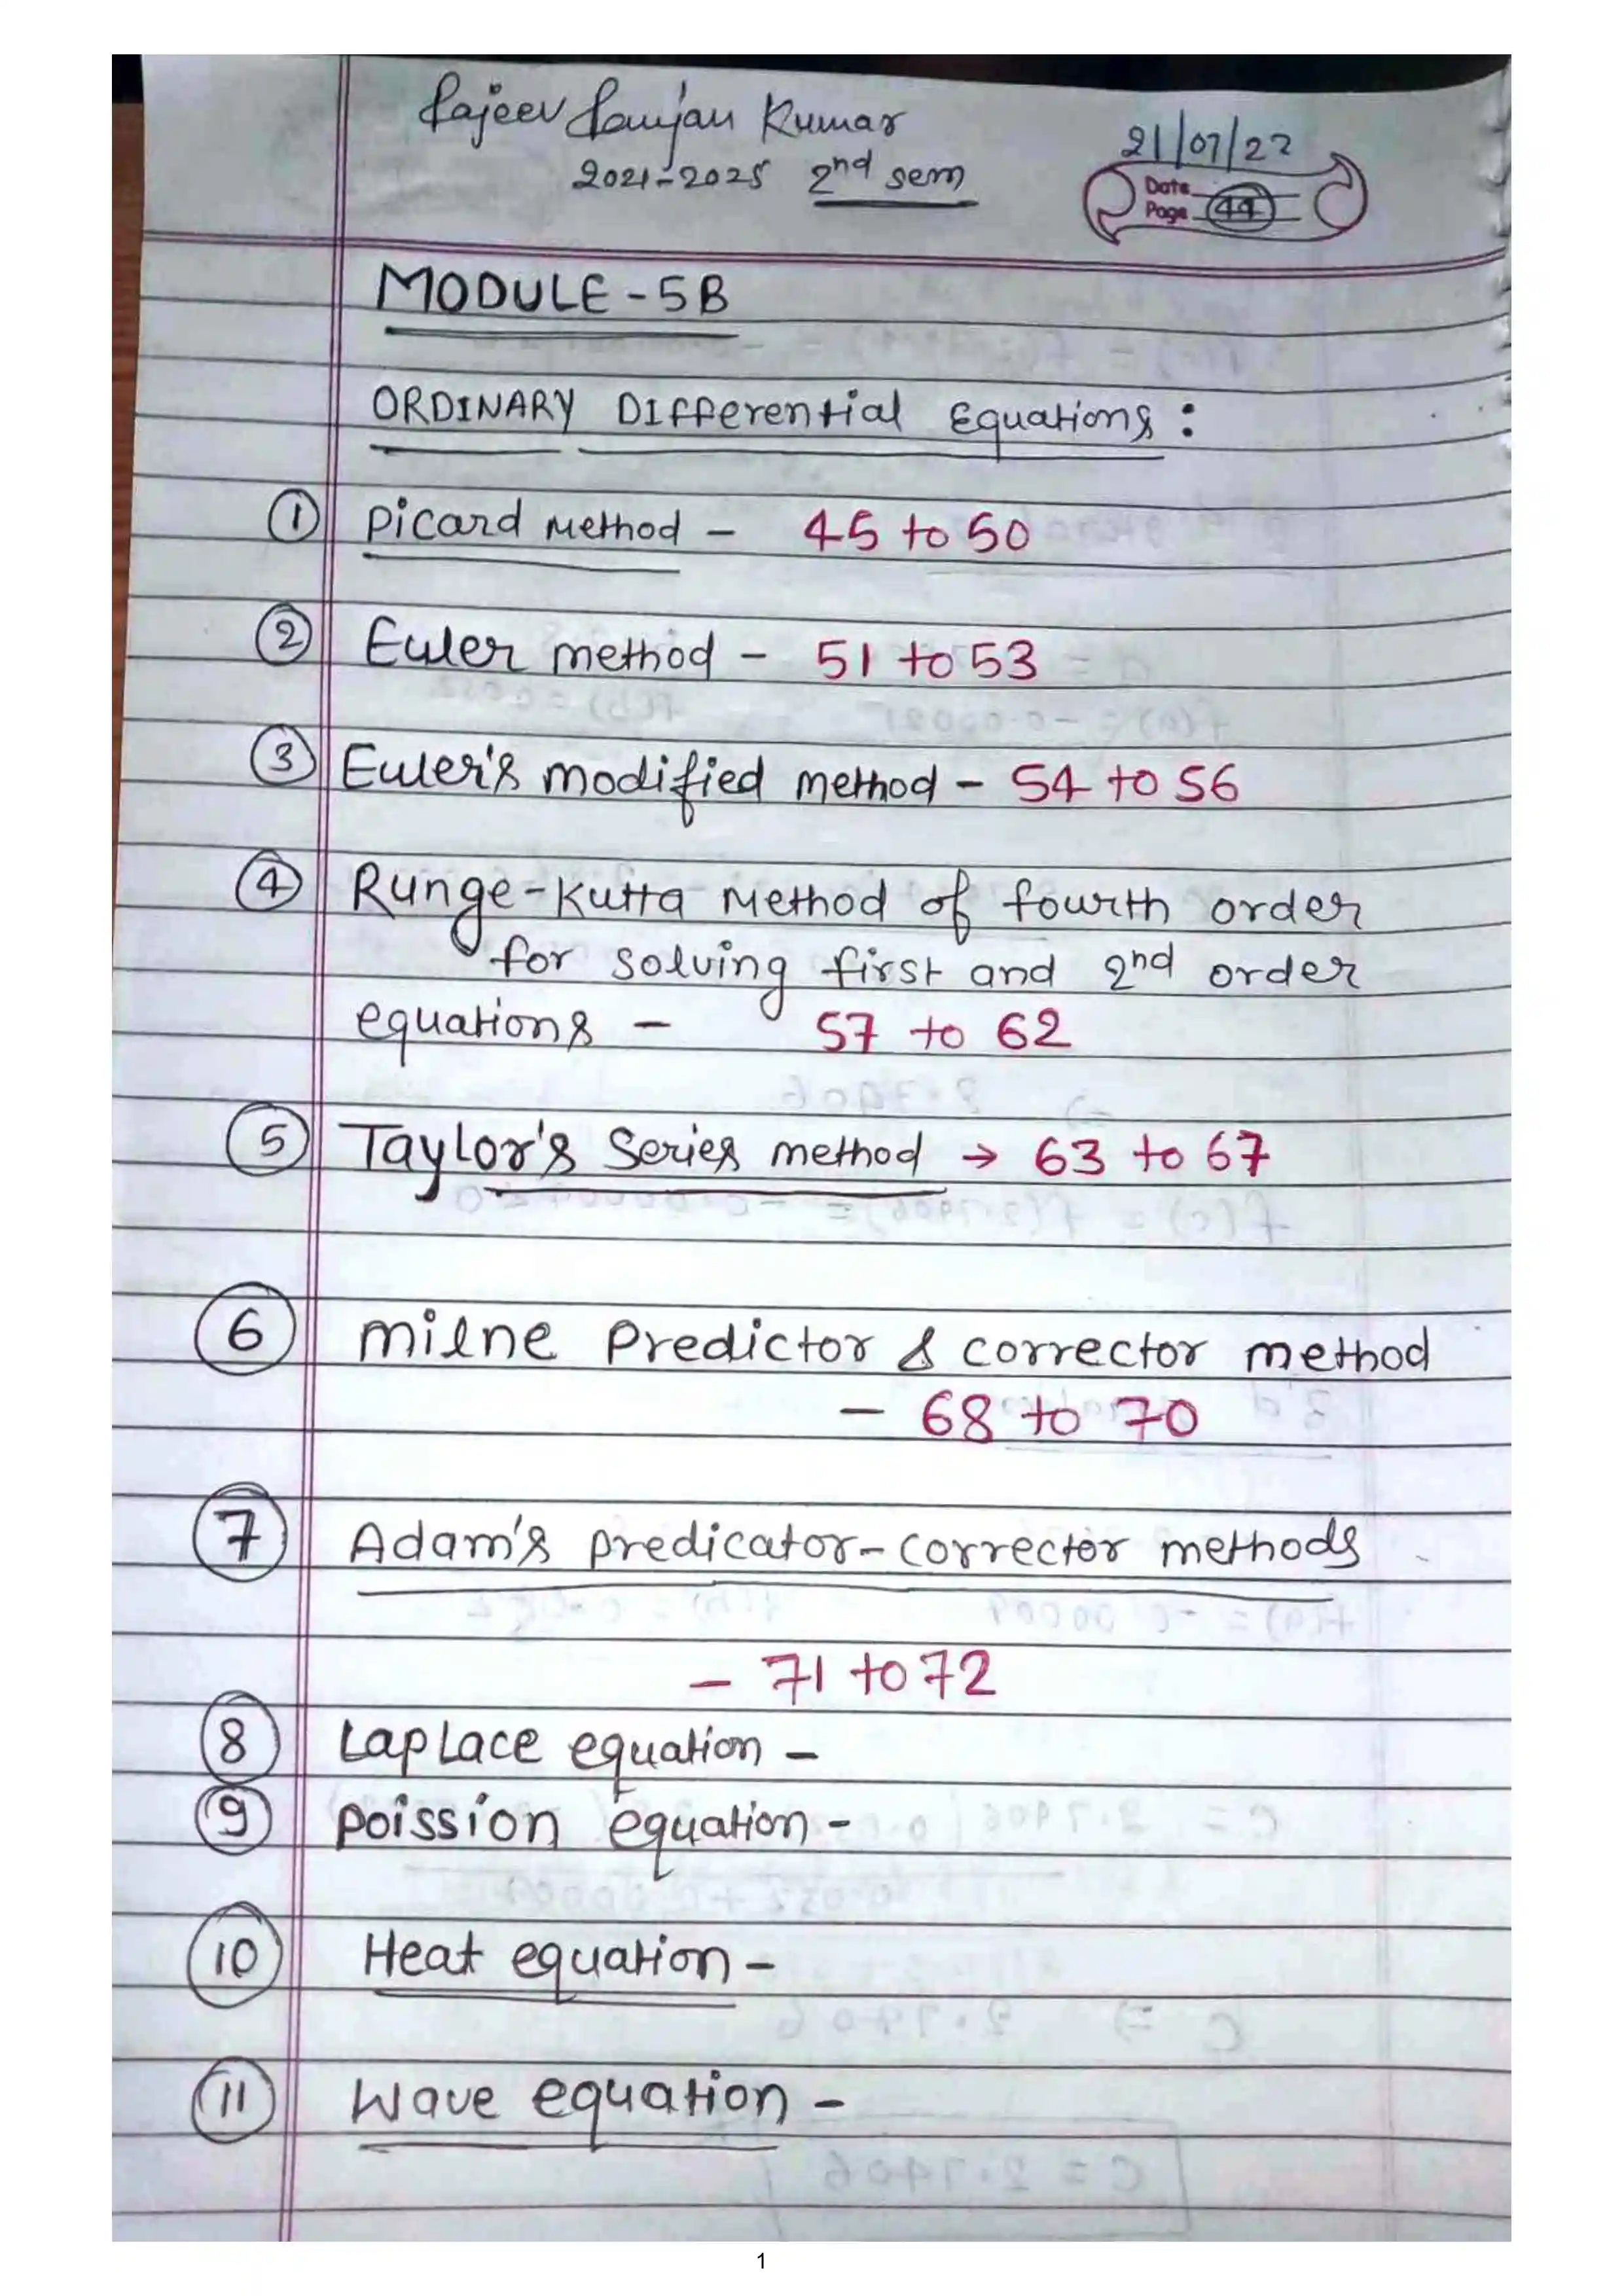 Rajeev Ranjan Kumar
2021-2025 2nd sem
21/07/22
Date
Page 44
MODULE-5B
ORDINARY Differential Equations:
① Picard Method - 45 to 50
② Euler method - 51 to 53
③ Euler's modified method - 54 to 56
④ Runge-Kutta Method of fourth order
for solving first and 2nd order
equations - 57 to 62
⑤ Taylor's Series method → 63 to 67
⑥ Milne Predictor & corrector method
- 68 to 70
⑦ Adam's predicator-corrector methods
- 71 to 72
⑧ Laplace equation -
⑨ Poission equation -
⑩ Heat equation -
⑪ Wave equation -
1